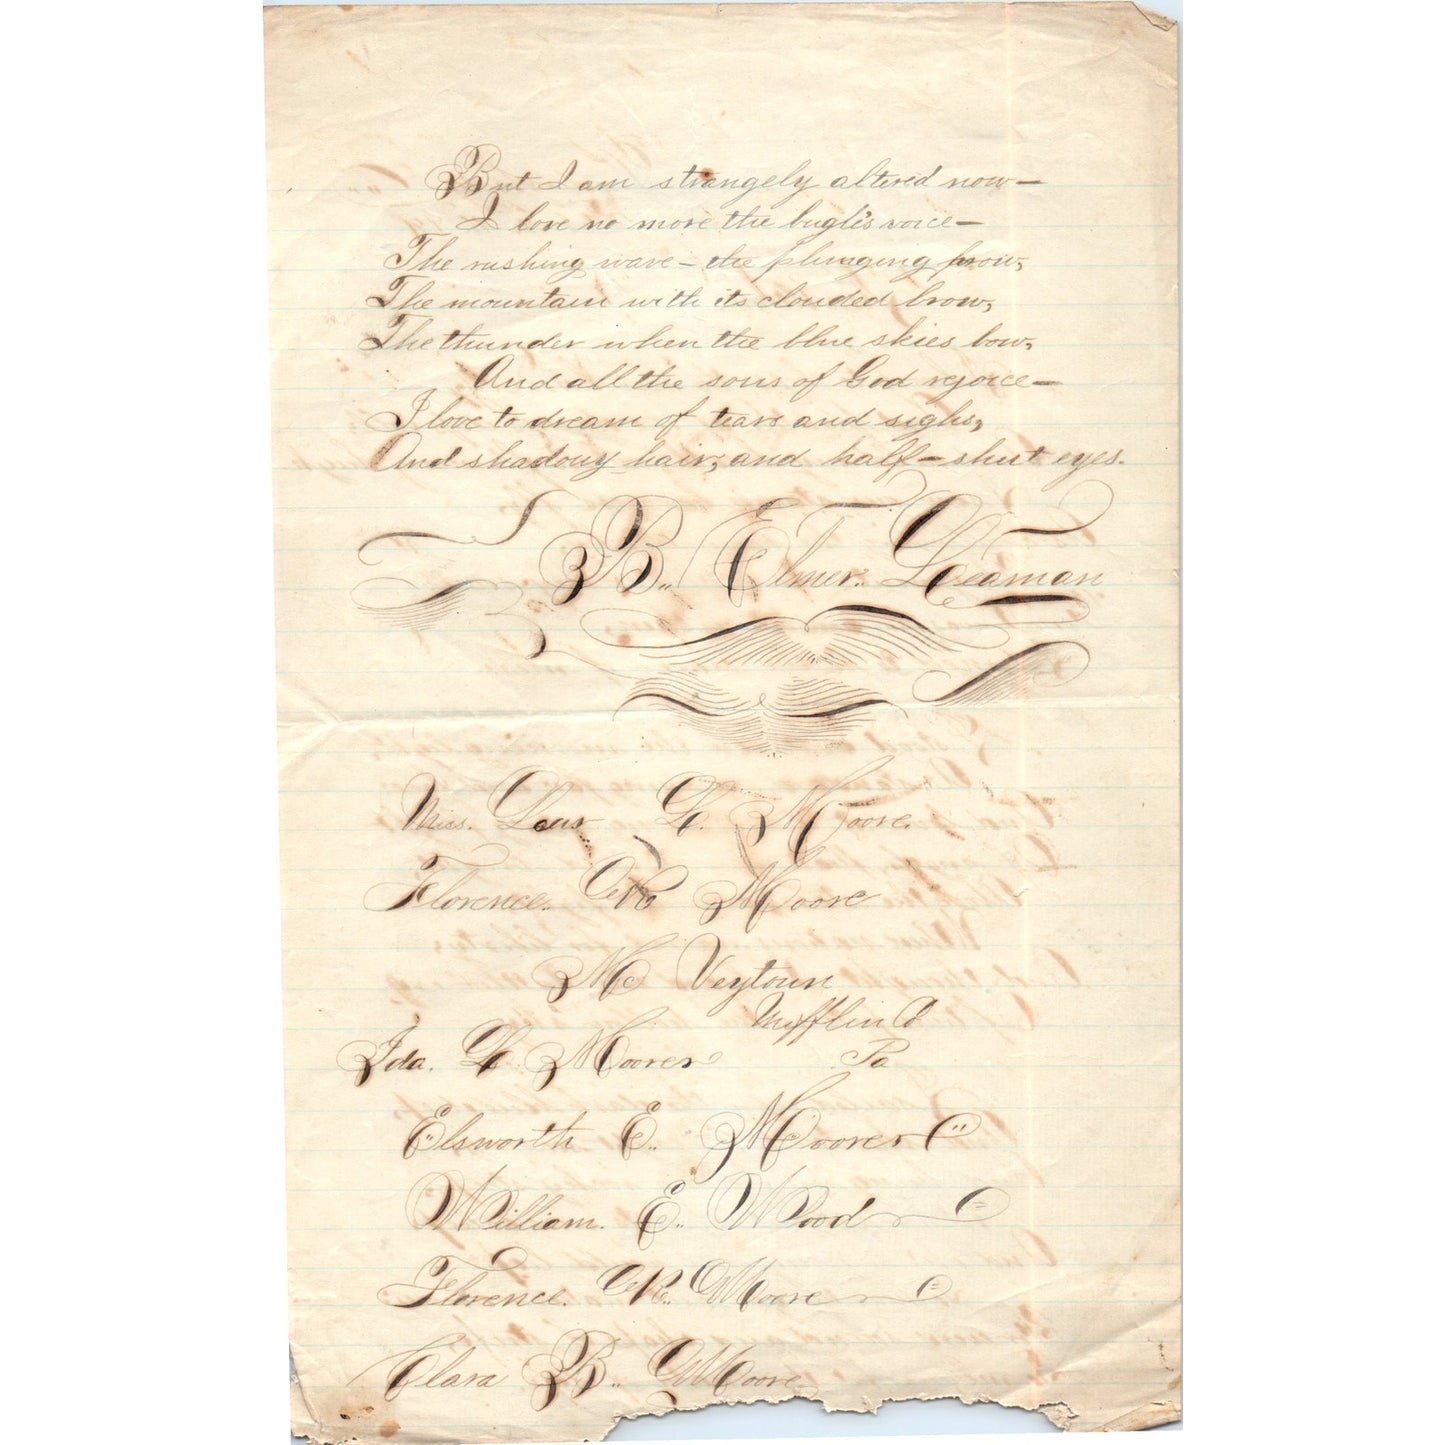 But I am strangely altered now—
I love no more the bugle's voice—
The rushing wave—the plunging prow,
The mountain with its clouded brow,
The thunder when the blue skies bow,
And all the sons of God rejoice—
I love to dream of tears and sighs,
And shadowy hair, and half-shut eyes.
B. Elmer. Leaman
Miss. L. Moore.
Florence. R Moore
Mc Veytown
Mifflin Co
Pa
Ida. L. Moore
Elsworth E. Moore
William. E. Wood
Florence. R. Moore
Clara B. Moore